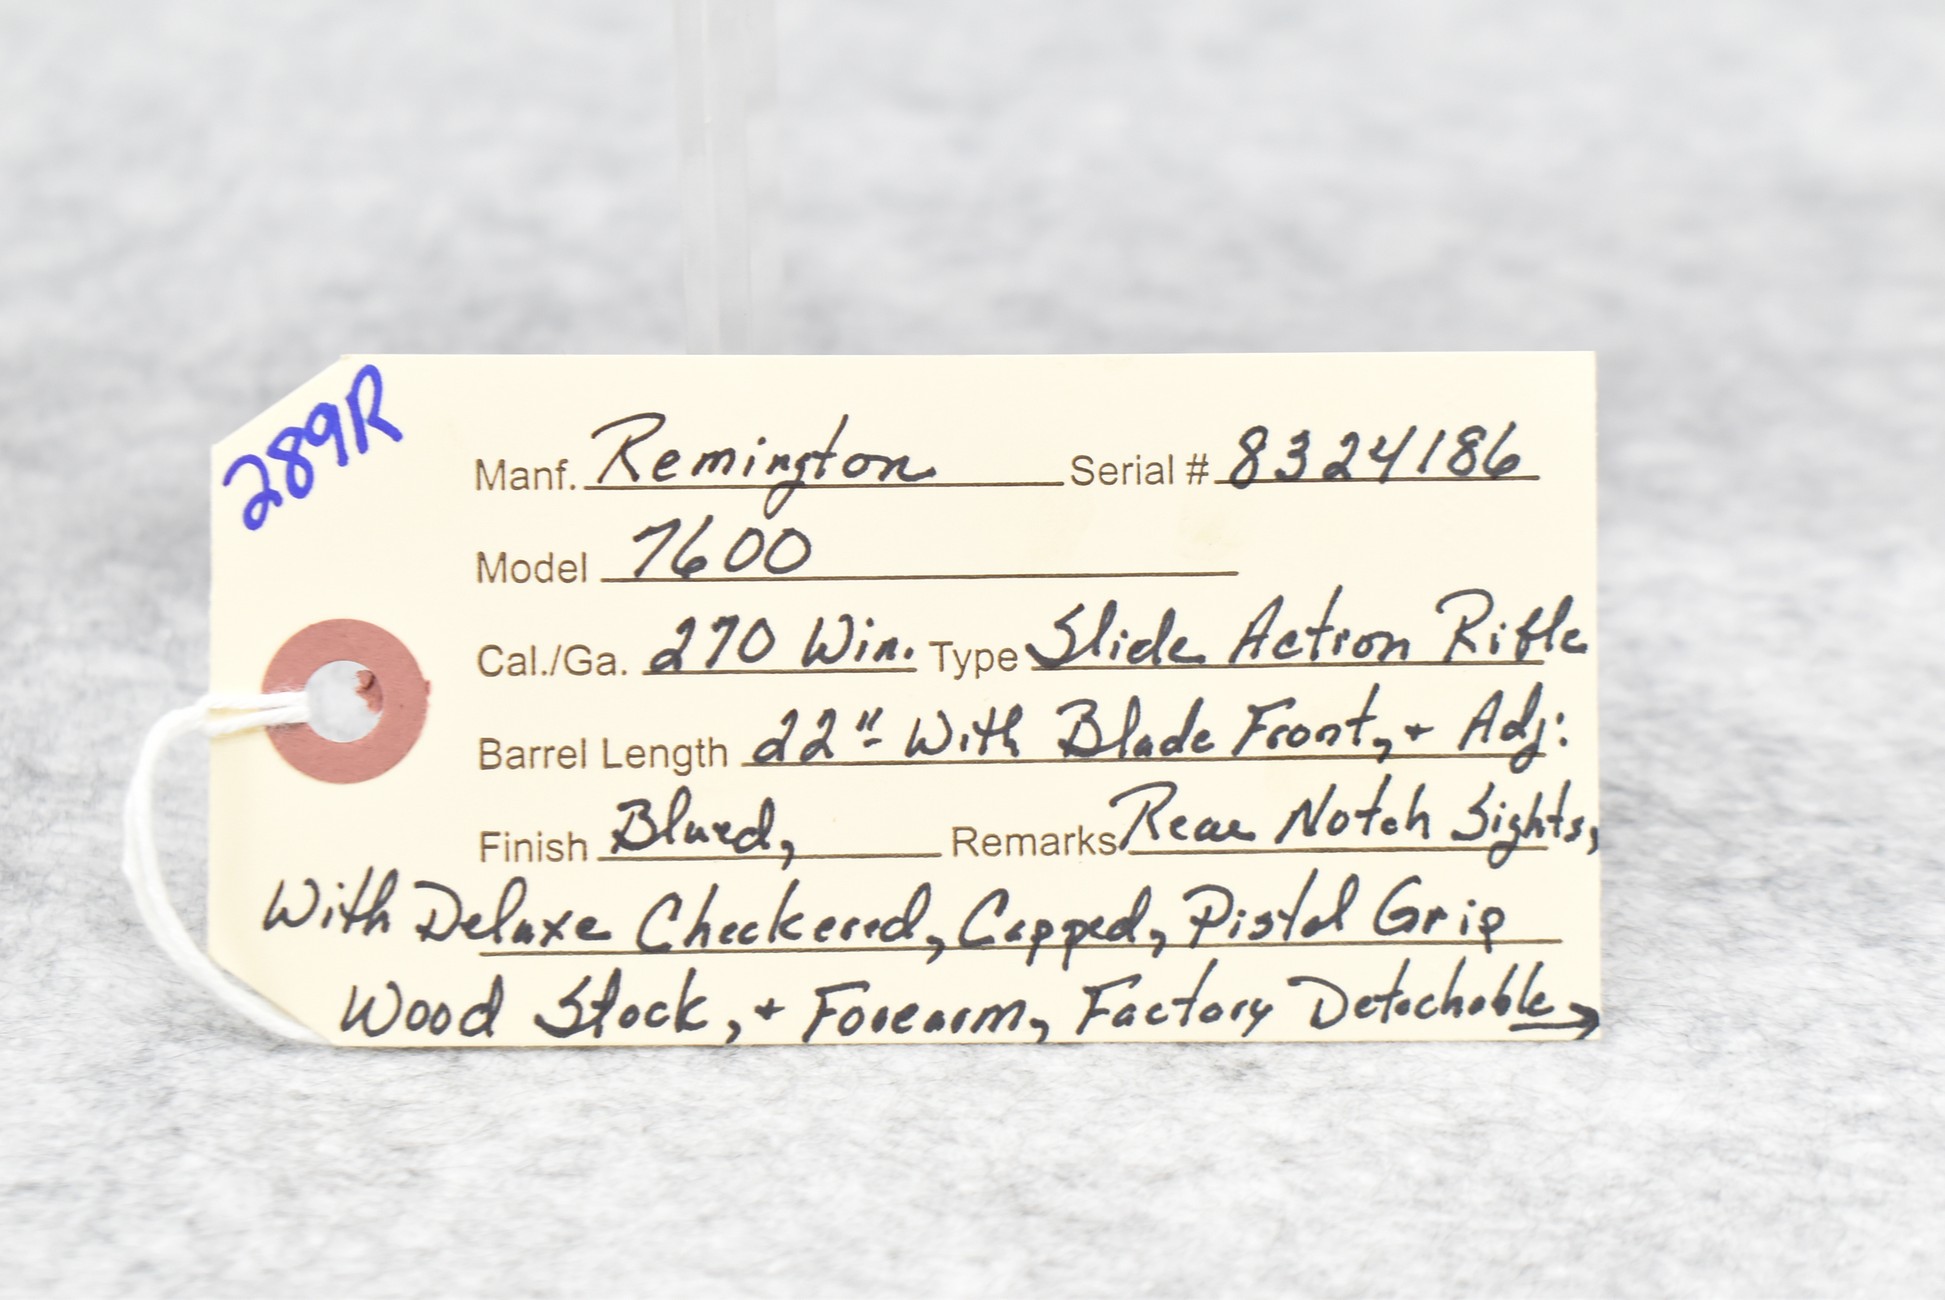 289R
Manf. Remington Serial # 8324186
Model 7600
Cal./Ga. 270 Win. Type Slide Action Rifle
Barrel Length 22" With Blade Front, + Adj:
Finish Blued, Remarks Rear Notch Sights,
With Deluxe Checkered, Capped, Pistol Grip
Wood Stock, + Forearm, Factory Detachable →